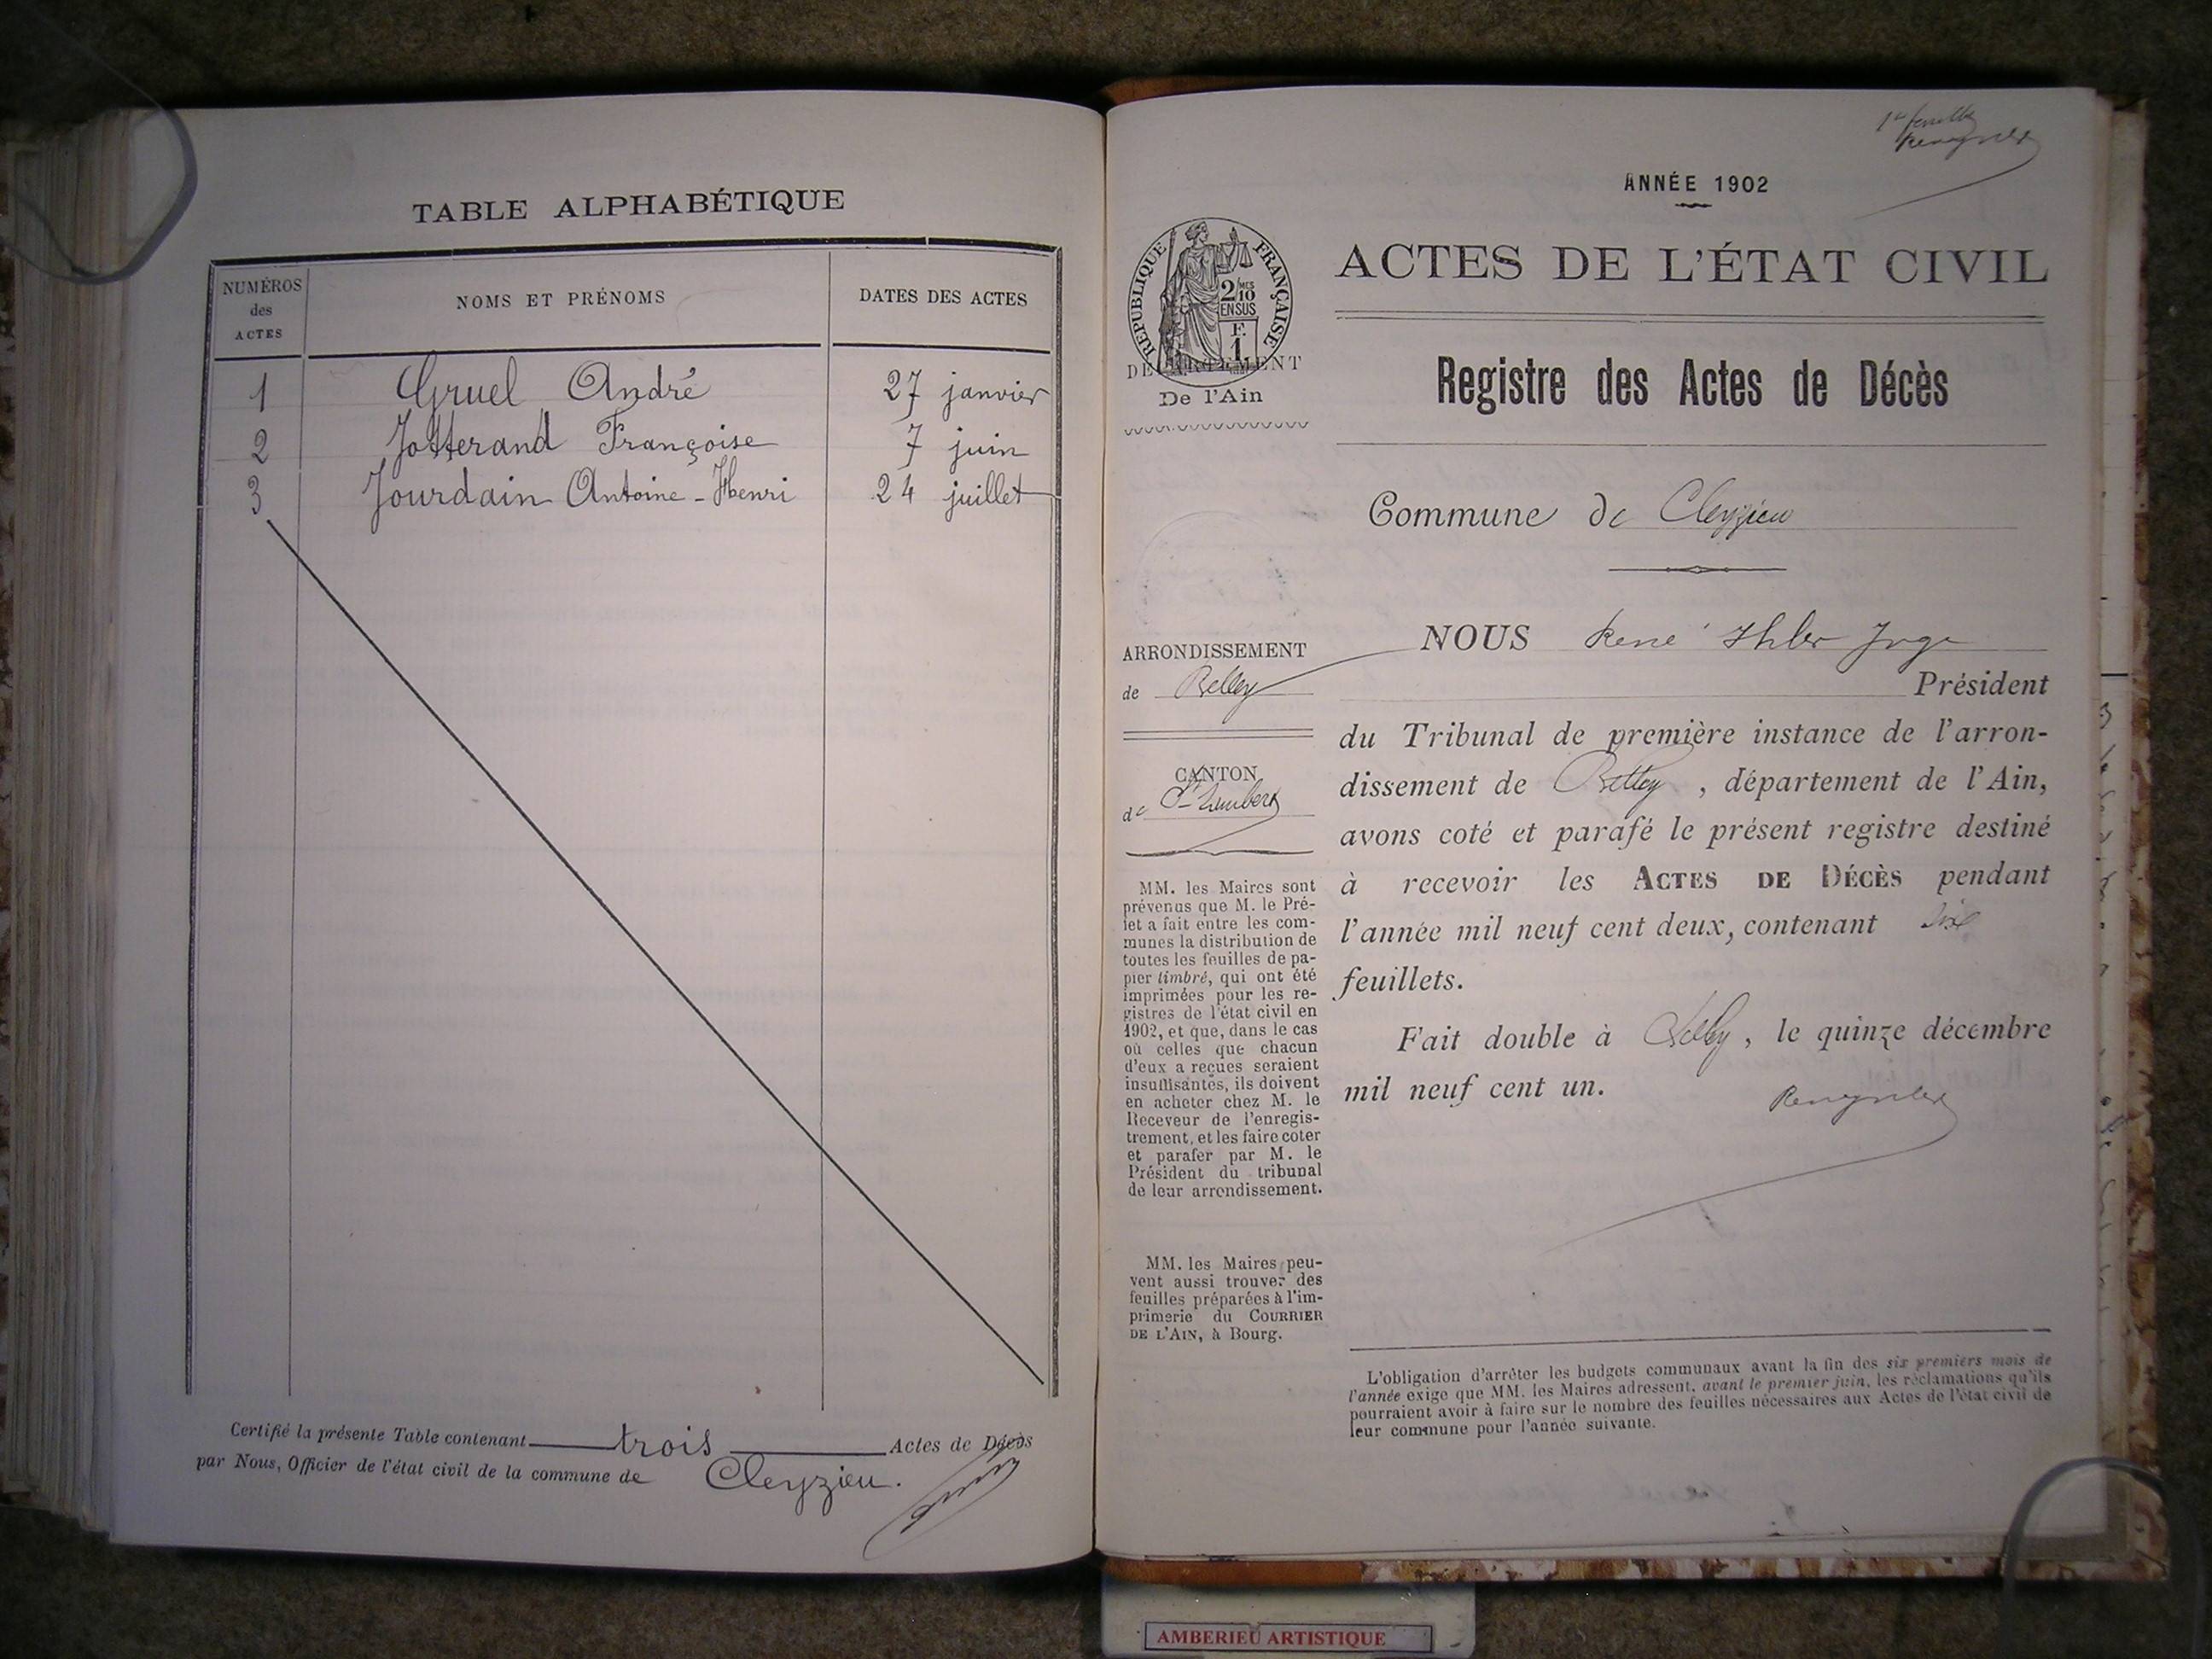 TABLE ALPHABÉTIQUE
NUMÉROS
des
ACTES
NOMS ET PRÉNOMS
DATES DES ACTES
1 Gruel André 27 janvier
2 Jotterand Françoise 7 juin
3 Jourdain Antoine-Henri 24 juillet
Certifié la présente Table contenant trois Actes de Décès
par Nous, Officier de l'état civil de la commune de Cleyzieu.
ANNÉE 1902
RÉPUBLIQUE FRANÇAISE
2/10
EN SUS
F.
1.
DÉPARTEMENT
De l'Ain
ARRONDISSEMENT
de Belley
CANTON
de St Rambert
MM. les Maires sont
prévenus que M. le Pré-
fet a fait entre les com-
munes la distribution de
toutes les feuilles de pa-
pier timbré, qui ont été
imprimées pour les re-
gistres de l'état civil en
1902, et que, dans le cas
où celles que chacun
d'eux a reçues seraient
insuffisantes, ils doivent
en acheter chez M. le
Receveur de l'enregis-
trement, et les faire coter
et parafer par M. le
Président du tribunal
de leur arrondissement.
MM. les Maires peu-
vent aussi trouver des
feuilles préparées à l'im-
primerie du COURRIER
DE L'AIN, à Bourg.
ACTES DE L'ÉTAT CIVIL
Registre des Actes de Décès
Commune de Cleyzieu
NOUS René
Président
du Tribunal de première instance de l'arron-
dissement de Belley, département de l'Ain,
avons coté et parafé le présent registre destiné
à recevoir les ACTES DE DÉCÈS pendant
l'année mil neuf cent deux, contenant six
feuillets.
Fait double à Belley, le quinze décembre
mil neuf cent un.
L'obligation d'arrêter les budgets communaux avant la fin des six premiers mois de
l'année exige que MM. les Maires adressent, avant le premier juin, les réclamations qu'ils
pourraient avoir à faire sur le nombre des feuilles nécessaires aux Actes de l'état civil de
leur commune pour l'année suivante.
AMBERIEU ARTISTIQUE